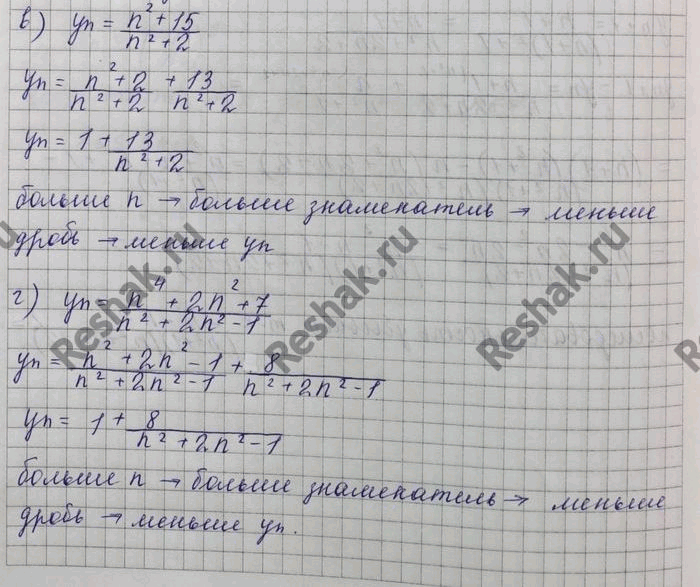 в) yn = n² + 15 / n² + 2
yn = n² + 2 / n² + 2 + 13 / n² + 2
yn = 1 + 13 / n² + 2
больше n → больше знаменатель → меньше
дробь → меньше yn
г) yn = n⁴ + 2n² + 7 / n² + 2n² - 1
yn = n² + 2n² - 1 / n² + 2n² - 1 + 8 / n² + 2n² - 1
yn = 1 + 8 / n² + 2n² - 1
больше n → больше знаменатель → меньше
дробь → меньше yn.
Reshak.ru
Reshak.ru
Reshak.ru
Reshak.ru